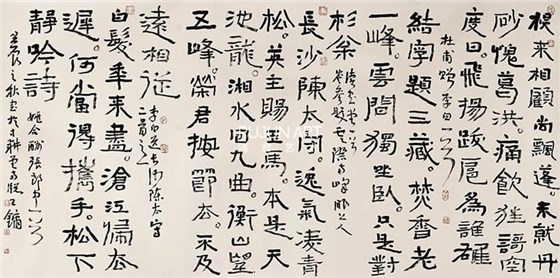 秋来相顧尚飄蓬。未就丹
砂愧葛洪。痛飲狂歌空
度日。飛揚跋扈為誰雄
杜甫赠李白一首
結宇題三藏。焚香老
一峰。雲間獨坐卧。只是對
杉松
長沙陳太守。逸氣凌青
松。英主賜五馬。本是天
池龍。湘水回九曲。衡山望
五峰。榮君按節去。不及
遠相從
李白送长沙陈太守
二首之一
白髮年來盡。滄江歸去
遲。何當得攜手。松下
靜吟詩
姚合酬張郎中一首